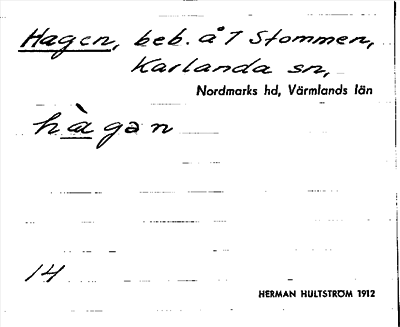 Hagen, beb. å 1 Stommen,
Karlanda sn,
Nordmarks hd, Värmlands län
hàgan
14
HERMAN HULTSTRÖM 1912